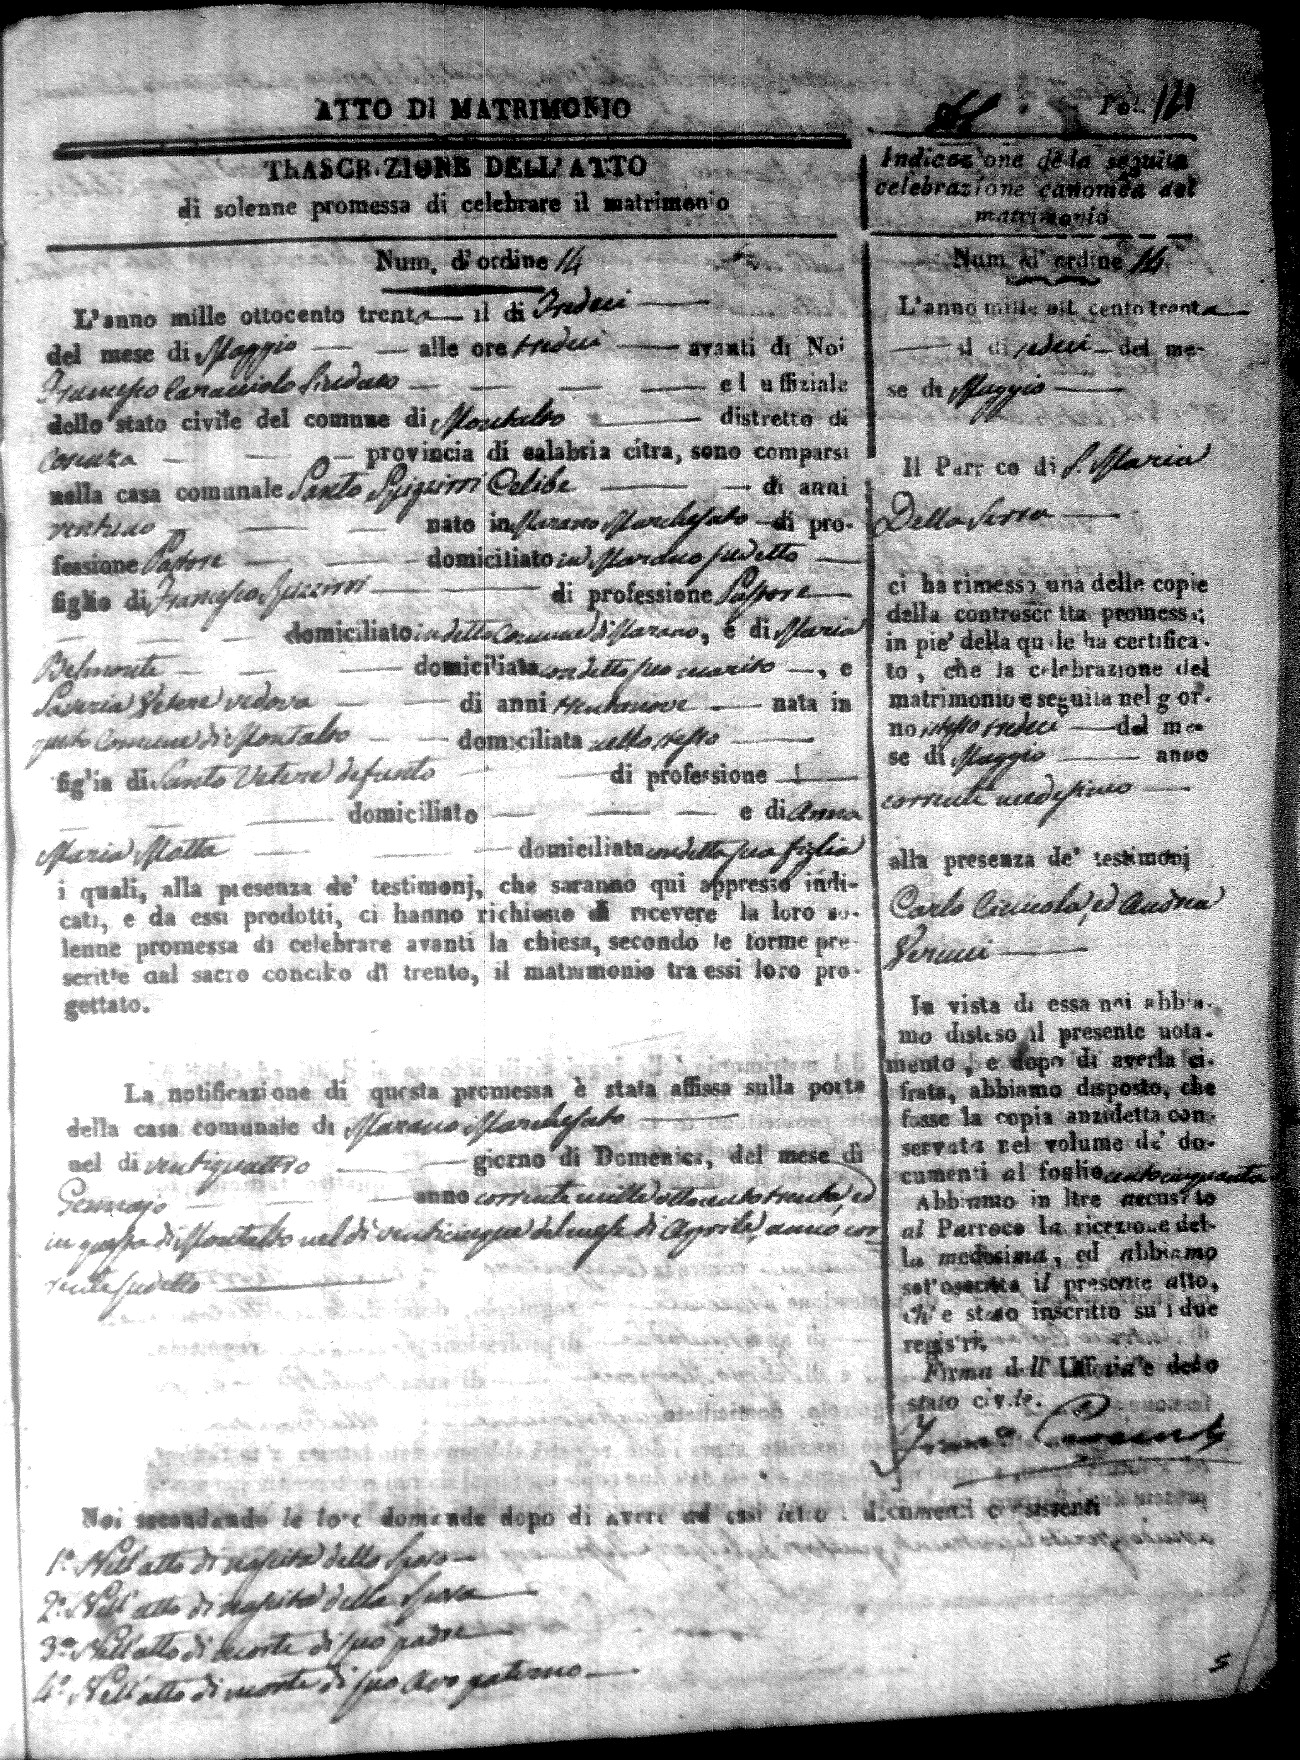 ATTO DI MATRIMONIO
TRASCRIZIONE DELL'ATTO
di solenne promessa di celebrare il matrimonio
Num. d'ordine 14
L'anno mille ottocento trenta il di Tredici
del mese di Maggio alle ore tredici avanti di Noi
Francesco Caracciolo Sindaco ed uffiziale
dello stato civile del comune di Montalto distretto di
Cosenza provincia di calabria citra, sono comparsi
nella casa comunale Santo Celibe di anni
nato in Marano Marchesato di pro-
fessione Pastore domiciliato in Marano sudetto
figlio di Francesco di professione Pastore
domiciliato in detto Comune di Marano, e di Maria
Belmonte domiciliata con detto suo marito, e
Saveria Vetere vedova di anni trentanove nata in
questo Comune di Montalto domiciliata nello stesso
figlia di Santo Vetere defunto di professione
domiciliato e di Anna
Maria Motta domiciliata con detta sua figlia
i quali, alla presenza de' testimonj, che saranno qui appresso indi-
cati, e da essi prodotti, ci hanno richiesto di ricevere la loro so-
lenne promessa di celebrare avanti la chiesa, secondo le forme pre-
scritte dal sacro concilio di trento, il matrimonio tra essi loro pro-
gettato.
La notificazione di questa promessa è stata affissa sulla porta
della casa comunale di Marano Marchesato
nel di ventiquattro giorno di Domenica, del mese di
Gennajo anno corrente mille ottocento trenta, ed
in questa di Montalto nel di venticinque del mese di Aprile, anno cor
rente sudetto
Noi secondando le loro domande dopo di avere ad essi letto i documenti consistenti
1.° Nell'atto di nascita dello sposo
2.° Nell'atto di nascita della sposa
3.° Nell'atto di morte di suo padre
4.° Nell'atto di morte di suo avo paterno
Fol. 121
Indicazione della seguita
celebrazione canonica del
matrimonio
Num. d'ordine 14
L'anno mille ottocento trenta
il di tredici del me-
se di Maggio
Il Parroco di S. Maria
Della Serra
ci ha rimesso una delle copie
della controscritta promessa;
in pie' della quale ha certifica-
to, che la celebrazione del
matrimonio e seguita nel gior-
no istesso tredici del me-
se di Maggio anno
corrente medesimo
alla presenza de' testimonj
Carlo ed Andrea
In vista di essa noi abbia-
mo disteso il presente nota-
mento, e dopo di averla ci-
frata, abbiamo disposto, che
fosse la copia anzidetta con-
servata nel volume de' do-
cumenti al foglio centocinquanta
Abbiamo inoltre accusato
al Parroco la ricezione del-
la medesima, ed abbiamo
sottoscritto il presente atto,
ch'e stato inscritto su i due
registri.
Firma dell'Uffiziale dello
stato civile.
5